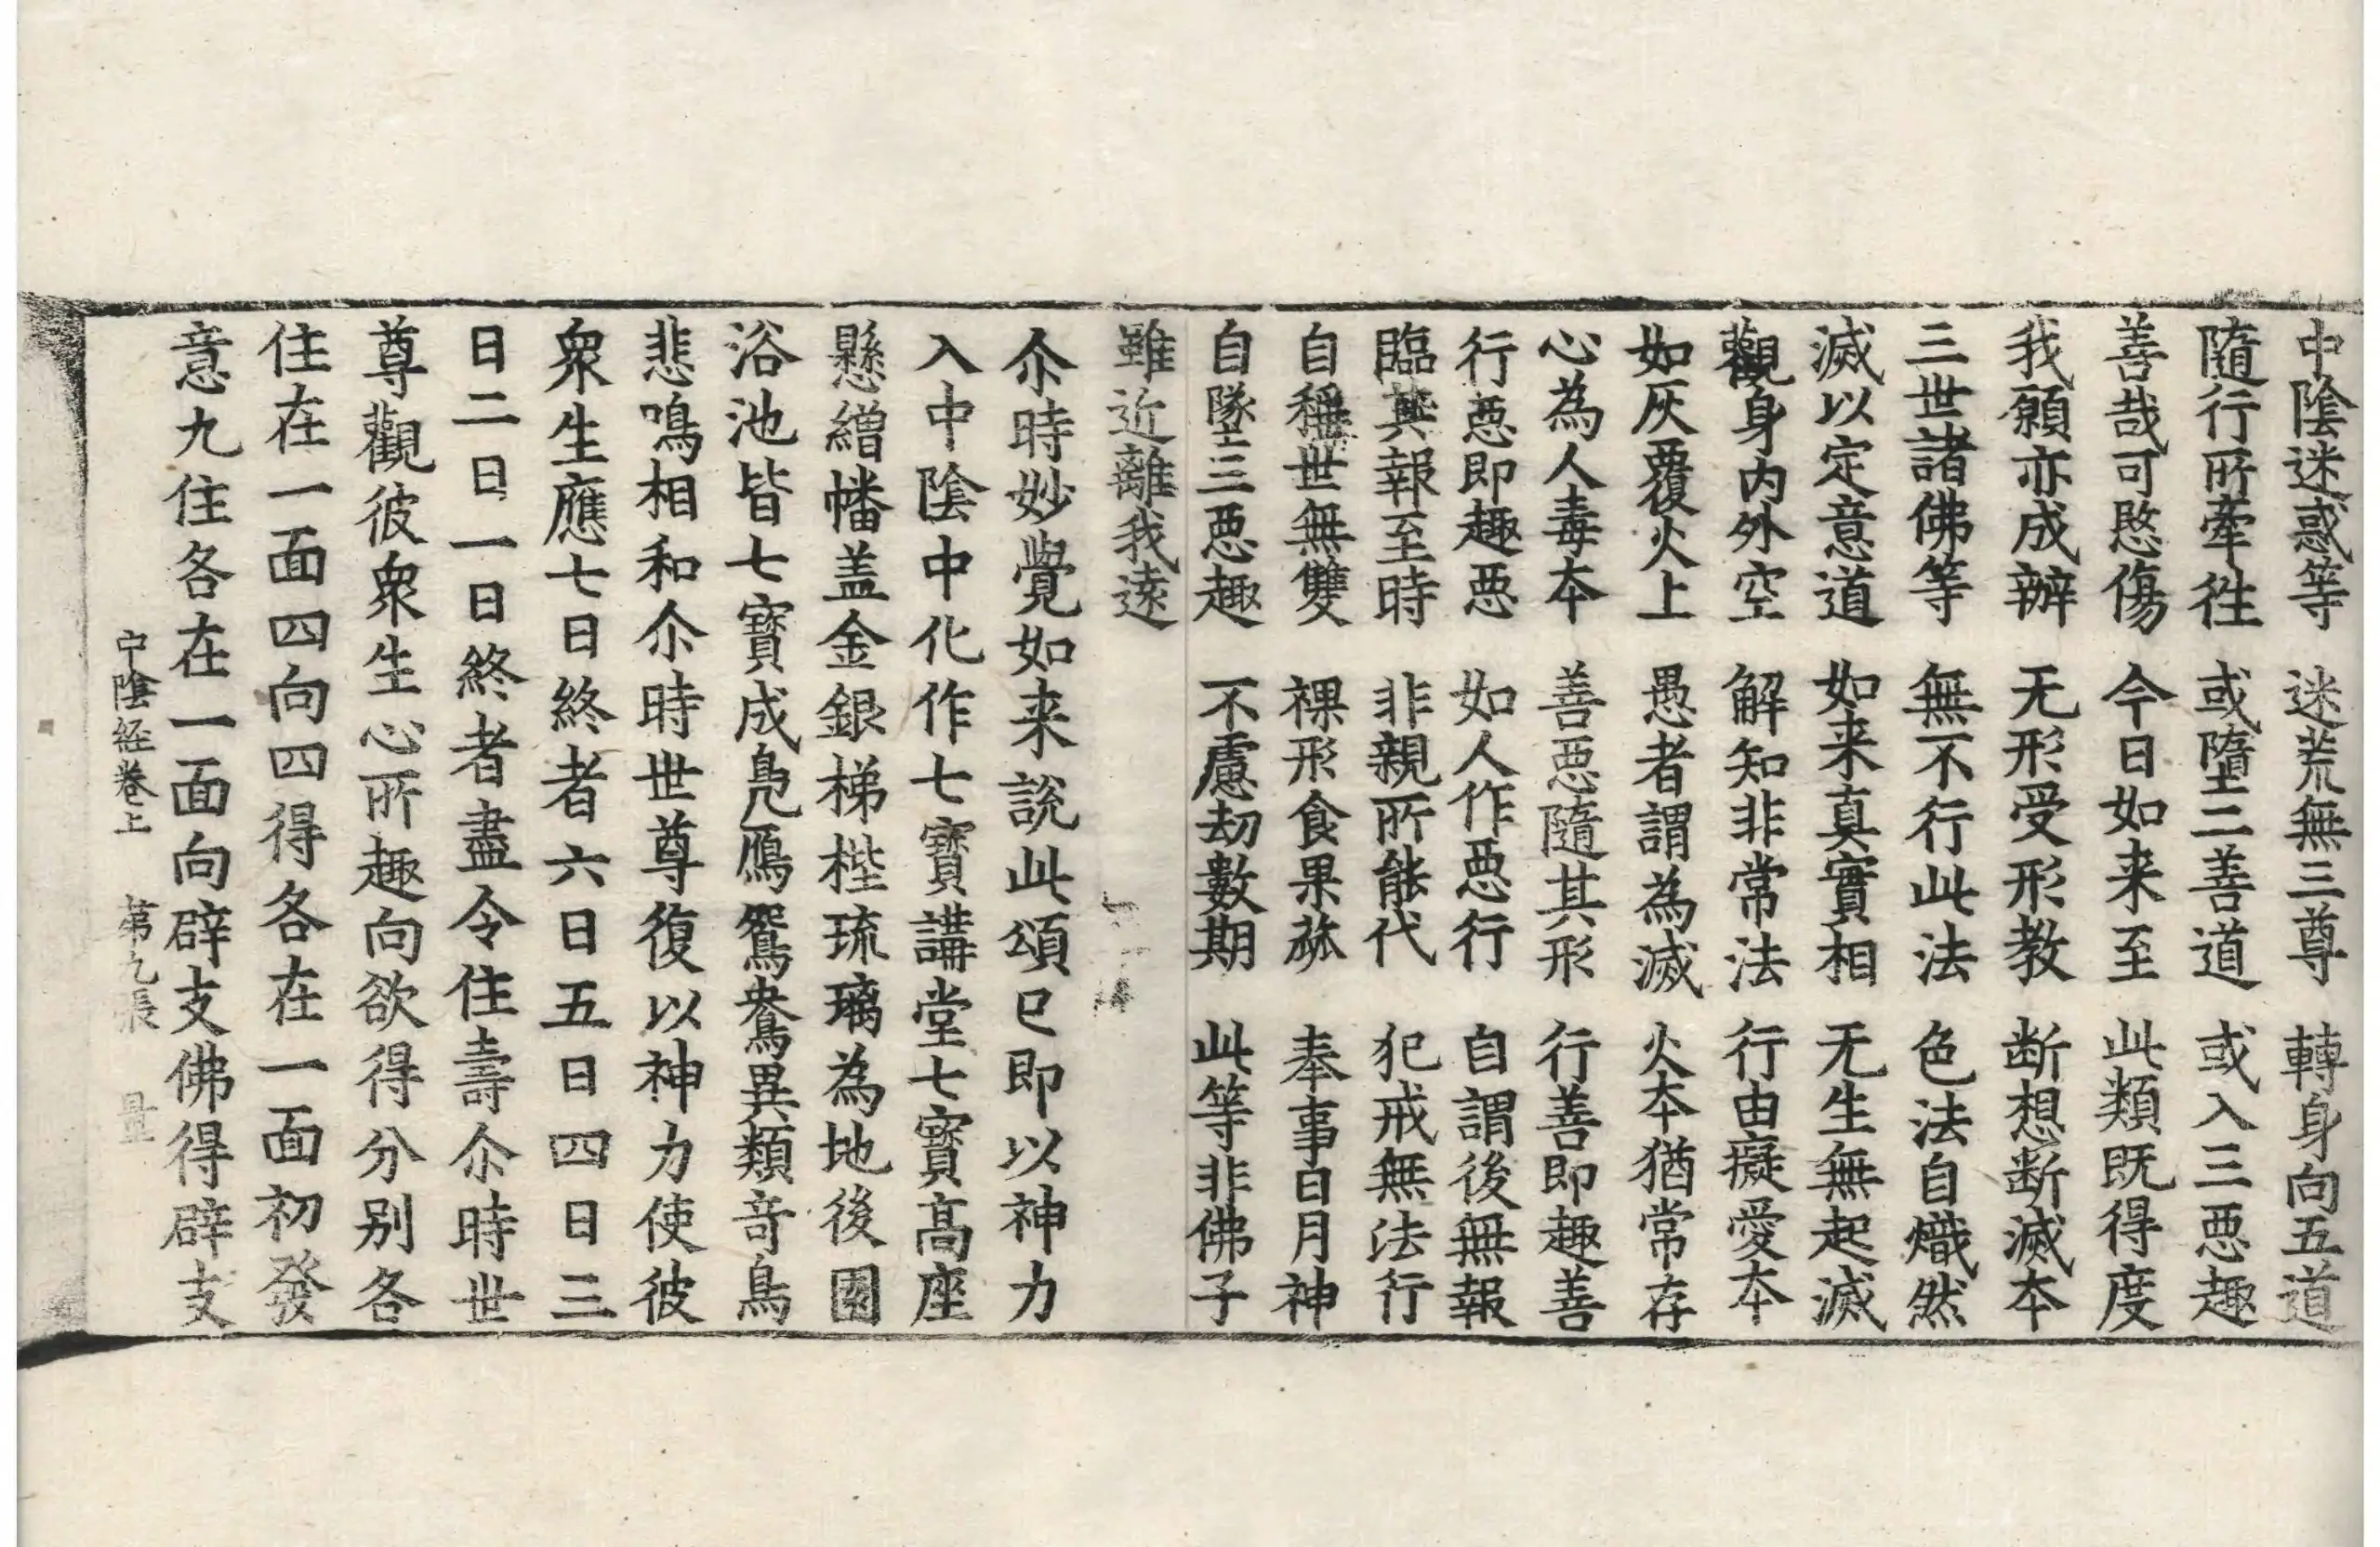 中陰迷惑等　迷荒無三尊　轉身向五道
隨行所牽徃　或墮二善道　或入三惡趣
善哉可愍傷　今日如来至　此類既得度
我願亦成辦　无形受形教　断想断滅本
三世諸佛等　無不行此法　色法自熾然
滅以定意道　如来真實相　无生無起滅
觀身内外空　解知非常法　行由癡愛本
如灰覆火上　愚者謂為滅　火本猶常存
心為人毒本　善惡隨其形　行善即趣善
行惡即趣惡　如人作惡行　自謂後無報
臨其報至時　非親所能代　犯戒無法行
自稱世無雙　裸形食果蓏　奉事日月神
自墜三惡趣　不慮劫數期　此等非佛子
雖近離我遠
尒時妙覺如来說此頌已即以神力
入中陰中化作七寶講堂七寶高座
懸繒幡盖金銀梯桱琉璃為地後園
浴池皆七寶成鳧鴈鴛鴦異類竒鳥
悲鳴相和尒時世尊復以神力使彼
衆生應七日終者六日五日四日三
日二日一日終者盡令住壽尒時世
尊觀彼衆生心所趣向欲得分別各
住在一面四向四得各在一面初發
意九住各在一面向辟支佛得辟支
中陰經卷上　第九張　量